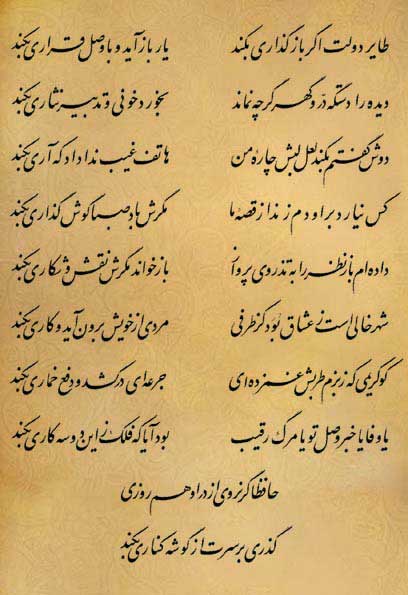 طایر دولت اگر باز گذاری بکند یار بازآید و با وصل قراری بکند
دیده را دستگه در و گهر گرچه نماند بخورد خونی و تدبیر نثاری بکند
دوش گفتم بکند لعل لبش چاره من هاتف غیب ندا داد که آری بکند
کس نیارد بر او دم زند از قصه ما مگرش باد صبا گوش گذاری بکند
داده ام باز نظر را به تذروی پرواز باز خواند مگرش نقش و شکاری بکند
شهر خالی است ز عشاق بود کز طرفی مردی از خویش برون آید و کاری بکند
کو کریمی که ز بزم طربش غمزده ای جرعه ای درکشد و دفع خماری بکند
یا وفا یا خبر وصل تو یا مرگ رقیب بود آیا که فلک زین دو سه کاری بکند
حافظا گر نروی از در او هم روزی
گذری بر سرت از گوشه کناری بکند